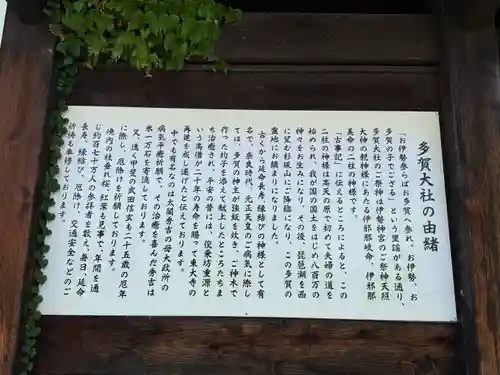 多賀大社の由緒
「お伊勢参らばお多賀へ参れ、お伊勢、お
多賀の子でござる」という里謡がある通り、
多賀大社のご祭神は伊勢神宮のご祭神天照
大神の親神様にあたる伊邪岐命、伊邪那
美命の二柱の神様です。
「古事記」に伝えるところによると、この
二柱の神様は高天の原で初めて夫婦の道を
始められ、我が国の国土をはじめ八百万の
神々をお生みになり、その後、琵琶湖を西
に望む杉坂山にご降臨になり、この多賀の
霊地にお鎮まりになりました。
古くから延命長寿、縁結びの神様として有
名で、奈良時代、元正天皇のご病気に際し
ては、多賀の神主が強飯を炊き、ご神木で
作った杓子を添えて献上したところたちま
ち治癒され、鎌倉の昔には、俊乗坊重源と
いう高僧が二十年の寿命を賜って東大寺の
再建を成し遂げたと伝えております。
中でも有名なのは太閤秀吉の母大政所の
病気平癒祈願で、その治癒を喜んだ秀吉は
米一万石を寄進しております。
又、遠く甲斐の武田信玄も二十五歳の厄年
に際し、厄除けを祈願しております。
境内の枝垂れ桜、紅葉も見事で、年間を通
じ約百七十万人の参拝者を数え、毎日、延命
長寿、縁結び、厄除け、交通安全などのご
祈祷も奉修しております。